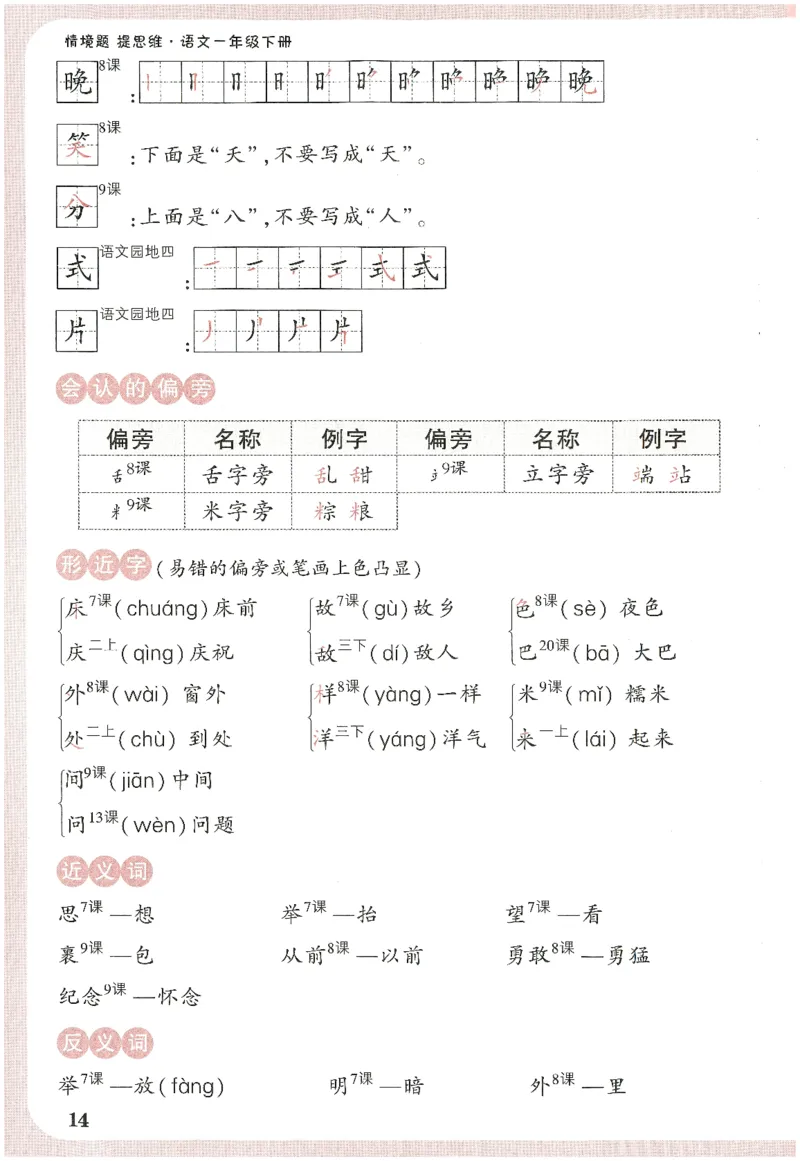 情境题 提思维·语文一年级下册
晚8课:
笑8课:下面是“夭”,不要写成“天”。
分9课:上面是“八”,不要写成“人”。
式语文园地四:
片语文园地四:
会认的偏旁
偏旁 名称 例字 偏旁 名称 例字
舌8课 舌字旁 乱 甜 立9课 立字旁 端 站
米9课 米字旁 粽 粮
形近字(易错的偏旁或笔画上色凸显)
床7课(chuáng)床前 故7课(gù)故乡 色8课(sè) 夜色
庆二上(qìng)庆祝 敌三下(dí)敌人 巴20课(bā) 大巴
外8课(wài) 窗外 样8课(yàng)一样 米9课(mǐ) 糯米
处二上(chù) 到处 洋三下(yáng)洋气 来一上(lái) 起来
间9课(jiān)中间
问13课(wèn)问题
近义词
思7课—想 举7课—抬 望7课—看
裹9课—包 从前8课—以前 勇敢8课—勇猛
纪念9课—怀念
反义词
举7课—放(fàng) 明7课—暗 外8课—里
14